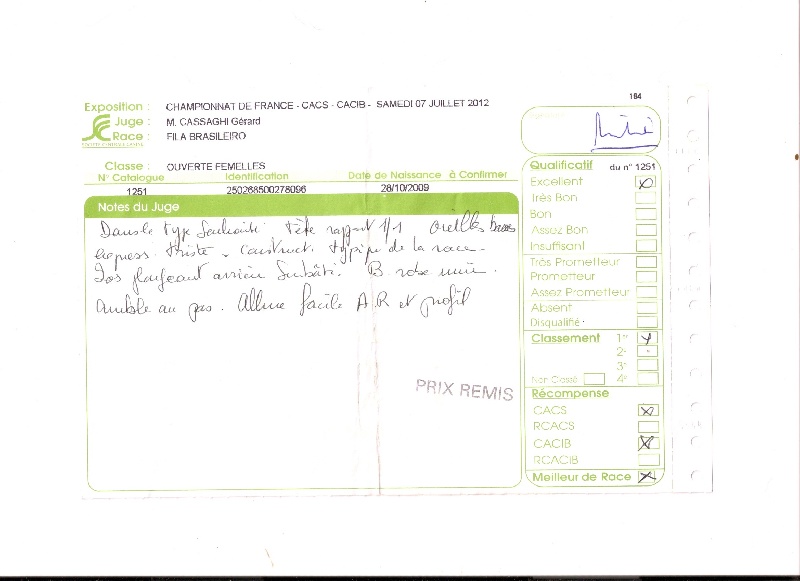 184
Exposition : CHAMPIONNAT DE FRANCE - CACS - CACIB - SAMEDI 07 JUILLET 2012
Juge : M. CASSAGHI Gérard
Race : FILA BRASILEIRO
SOCIÉTÉ CENTRALE CANINE
Classe : OUVERTE FEMELLES
N° Catalogue Identification Date de Naissance à Confirmer
1251 250268500278096 28/10/2009
Notes du Juge
Dans le type souhaité. Tête rapport 1/1 oreilles basses
express. triste. Construct. typique de la race.
Dos plongeant arrière surbâti. B. robe unie.
Amble au pas. Allure facile A.R et profil
PRIX REMIS
Qualificatif du n° 1251
Excellent X
Très Bon
Bon
Assez Bon
Insuffisant
Très Prometteur
Prometteur
Assez Prometteur
Absent
Disqualifié
Classement 1er X
2e
3e
Non Classé 4e
Récompense
CACS X
RCACS
CACIB X
RCACIB
Meilleur de Race X